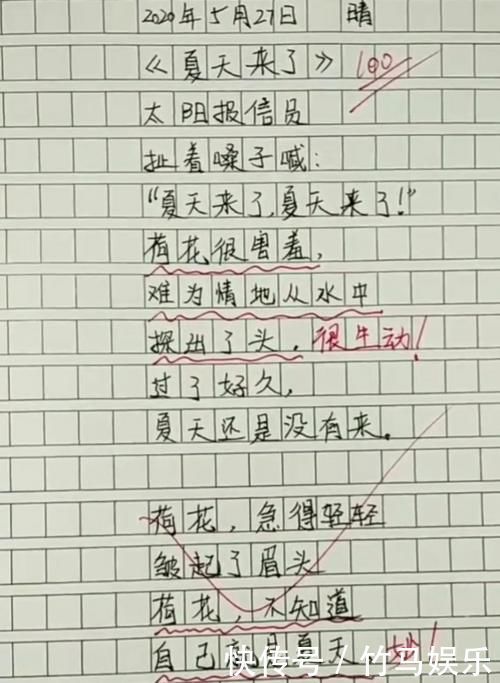 2020年5月27日 晴
《夏天来了》 100
太阳报信员
扯着嗓子喊:
“夏天来了,夏天来了!”
荷花很害羞,
难为情地从水中
探出了头。很生动!
过了好久,
夏天还是没有来。
荷花,急得轻轻
皱起了眉头
荷花,不知道
自己就是夏天
快传号/竹马娱乐